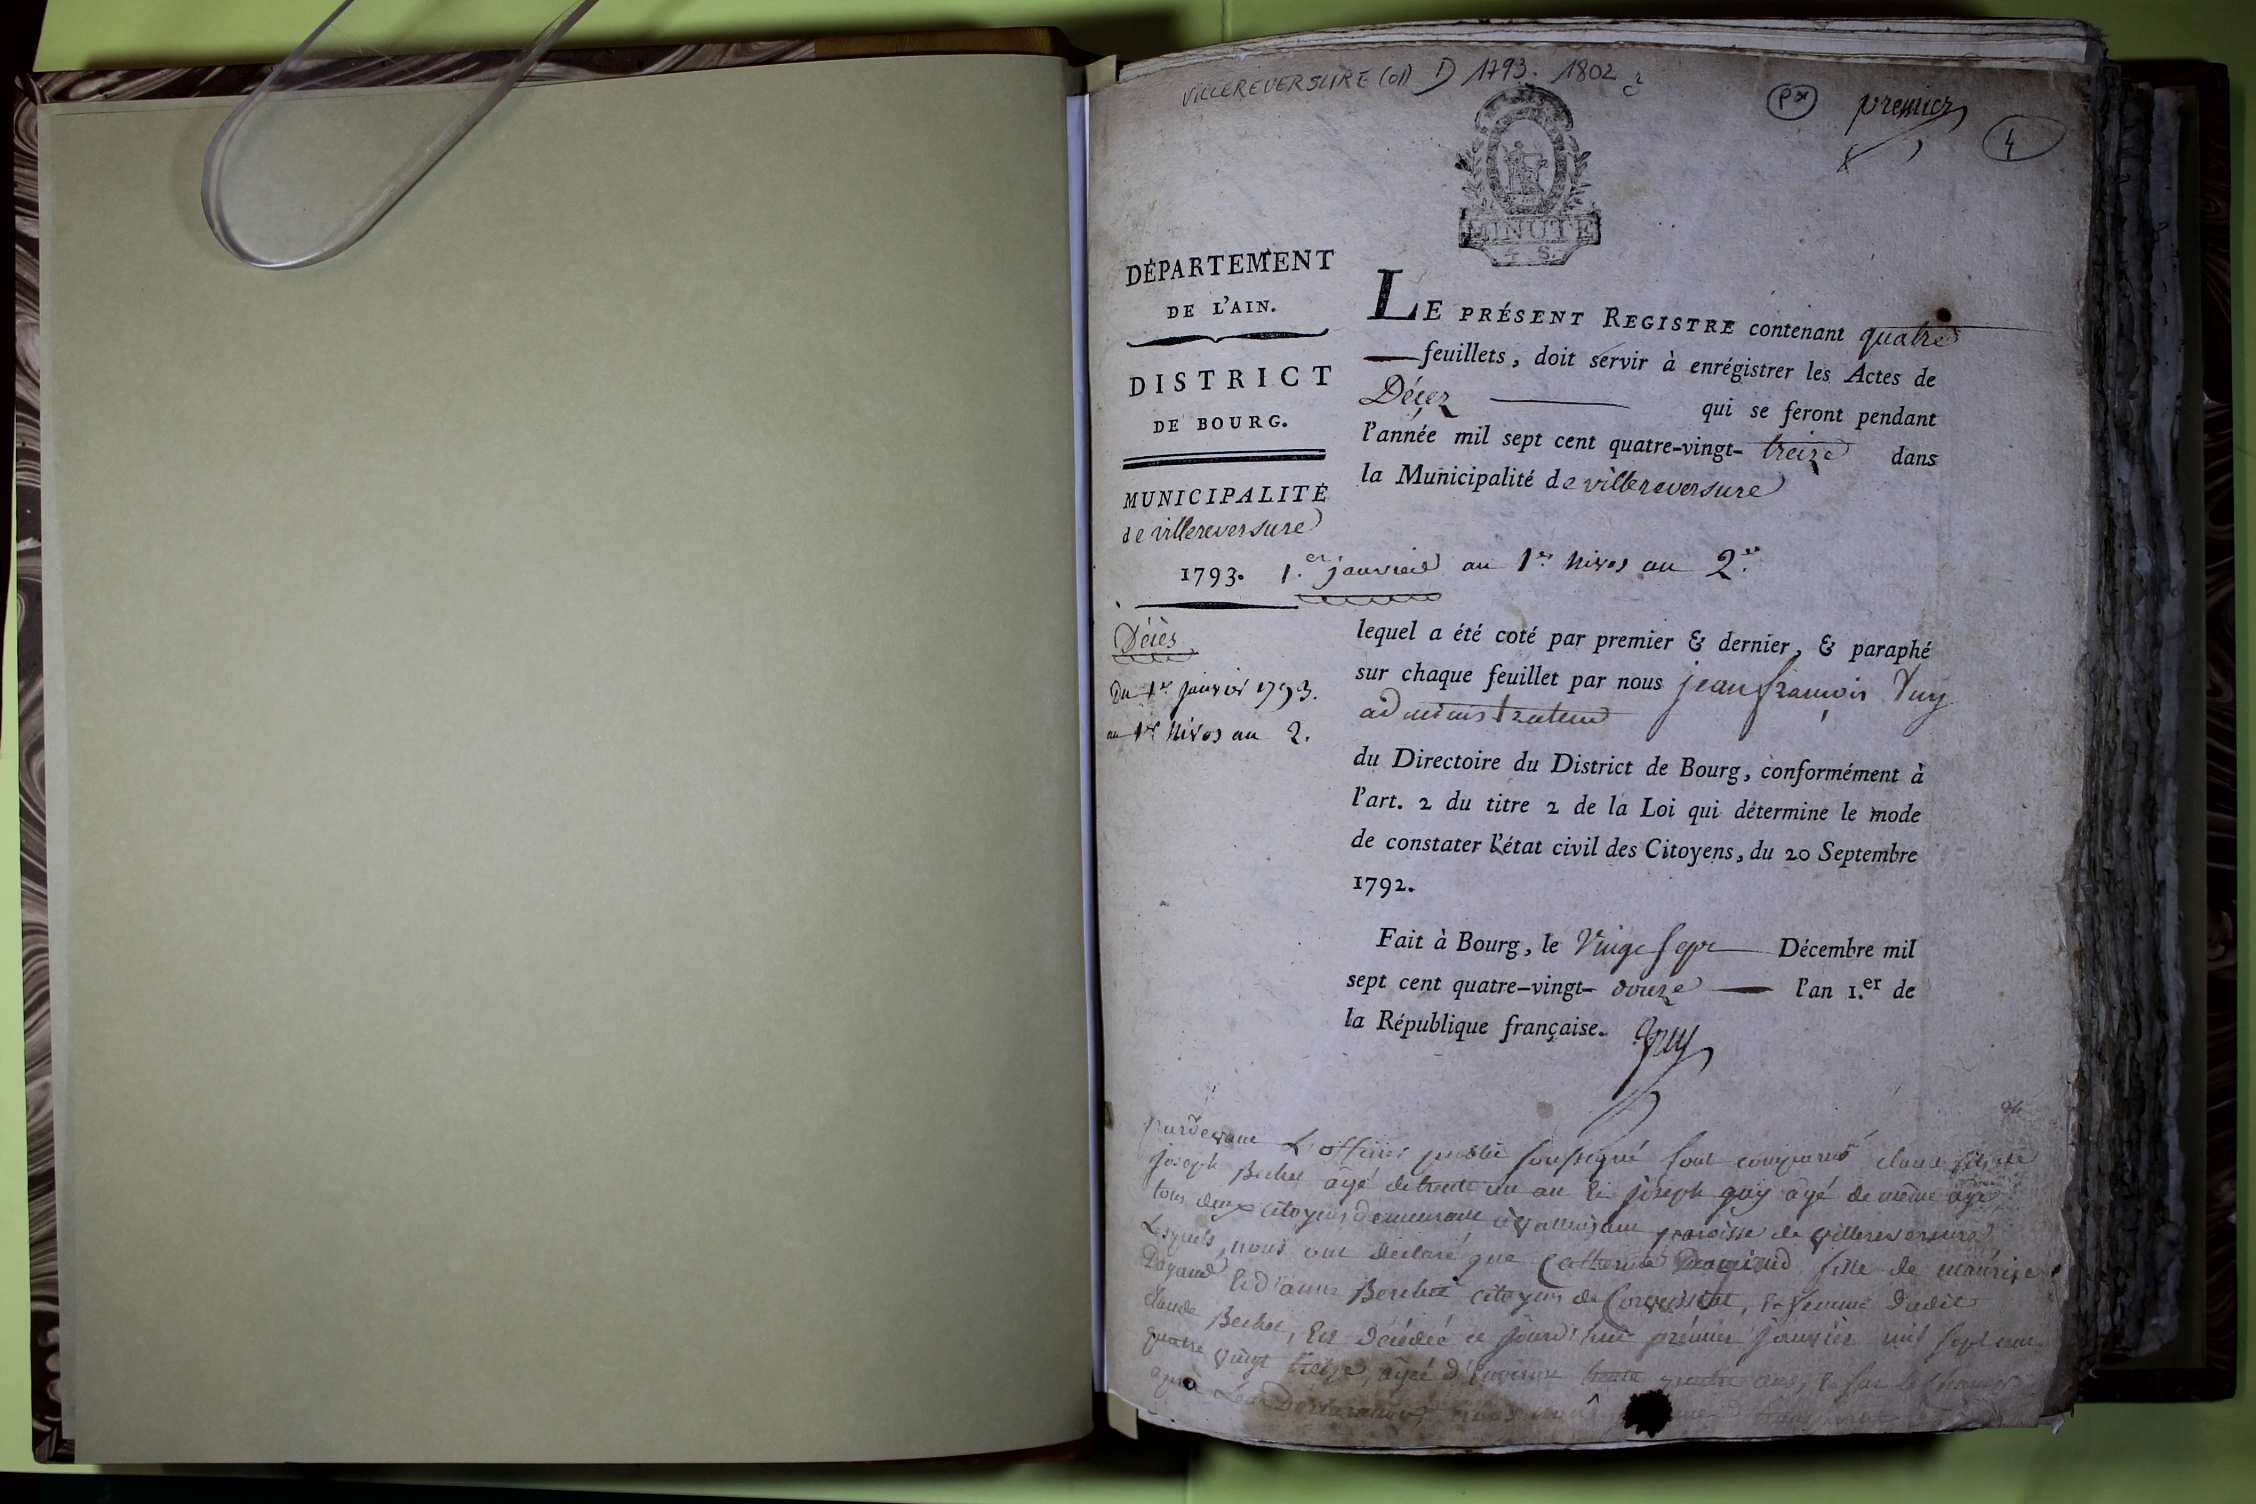 VILLEREVERSURE (01) D 1793. 1802
premier
4
MINUTE
4 S.
DÉPARTEMENT
DE L'AIN.
DISTRICT
DE BOURG.
MUNICIPALITÉ
de villereversure
1793. 1.er janvier au 1er Nivos an 2.
Décès
Du 1er janvier 1793.
au 1er Nivos an 2.
LE PRÉSENT REGISTRE contenant quatre
feuillets, doit servir à enrégistrer les Actes de
Décez qui se feront pendant
l'année mil sept cent quatre-vingt-treize dans
la Municipalité de villereversure
lequel a été coté par premier & dernier, & paraphé
sur chaque feuillet par nous jean françois
administrateur
du Directoire du District de Bourg, conformément à
l'art. 2 du titre 2 de la Loi qui détermine le mode
de constater l'état civil des Citoyens, du 20 Septembre
1792.
Fait à Bourg, le Vingt sept Décembre mil
sept cent quatre-vingt-douze l'an 1.er de
la République française.
pardevant L'officier public soussigné sont comparus claude
joseph Bechet âgé de trente un an Et joseph guy âgé de même age
tous deux citoyens demeurant paroisse de villereversure
Lesquels nous ont declaré que Catherine fille de maurice
Dagand Et D'anne citoyens de, Et femme dudit
claude Bechet, Est décédée ce jourd'hui prémier janvier mil sept cent
quatre vingt treize, âgée d'Environ ans,
après